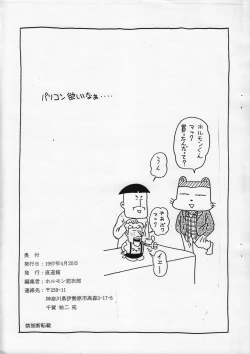 パソコン欲しいなぁ・・・・
ホルモンくん
マック
買ったんだって？
うん
マック
イエー
奥付
発行日：1997年4月20日
発行：直道館
編集者：ホルモン恵次郎
連絡先：〒259-11
神奈川県伊勢原市高森3-17-6
千坂 祐二 宛
禁無断転載